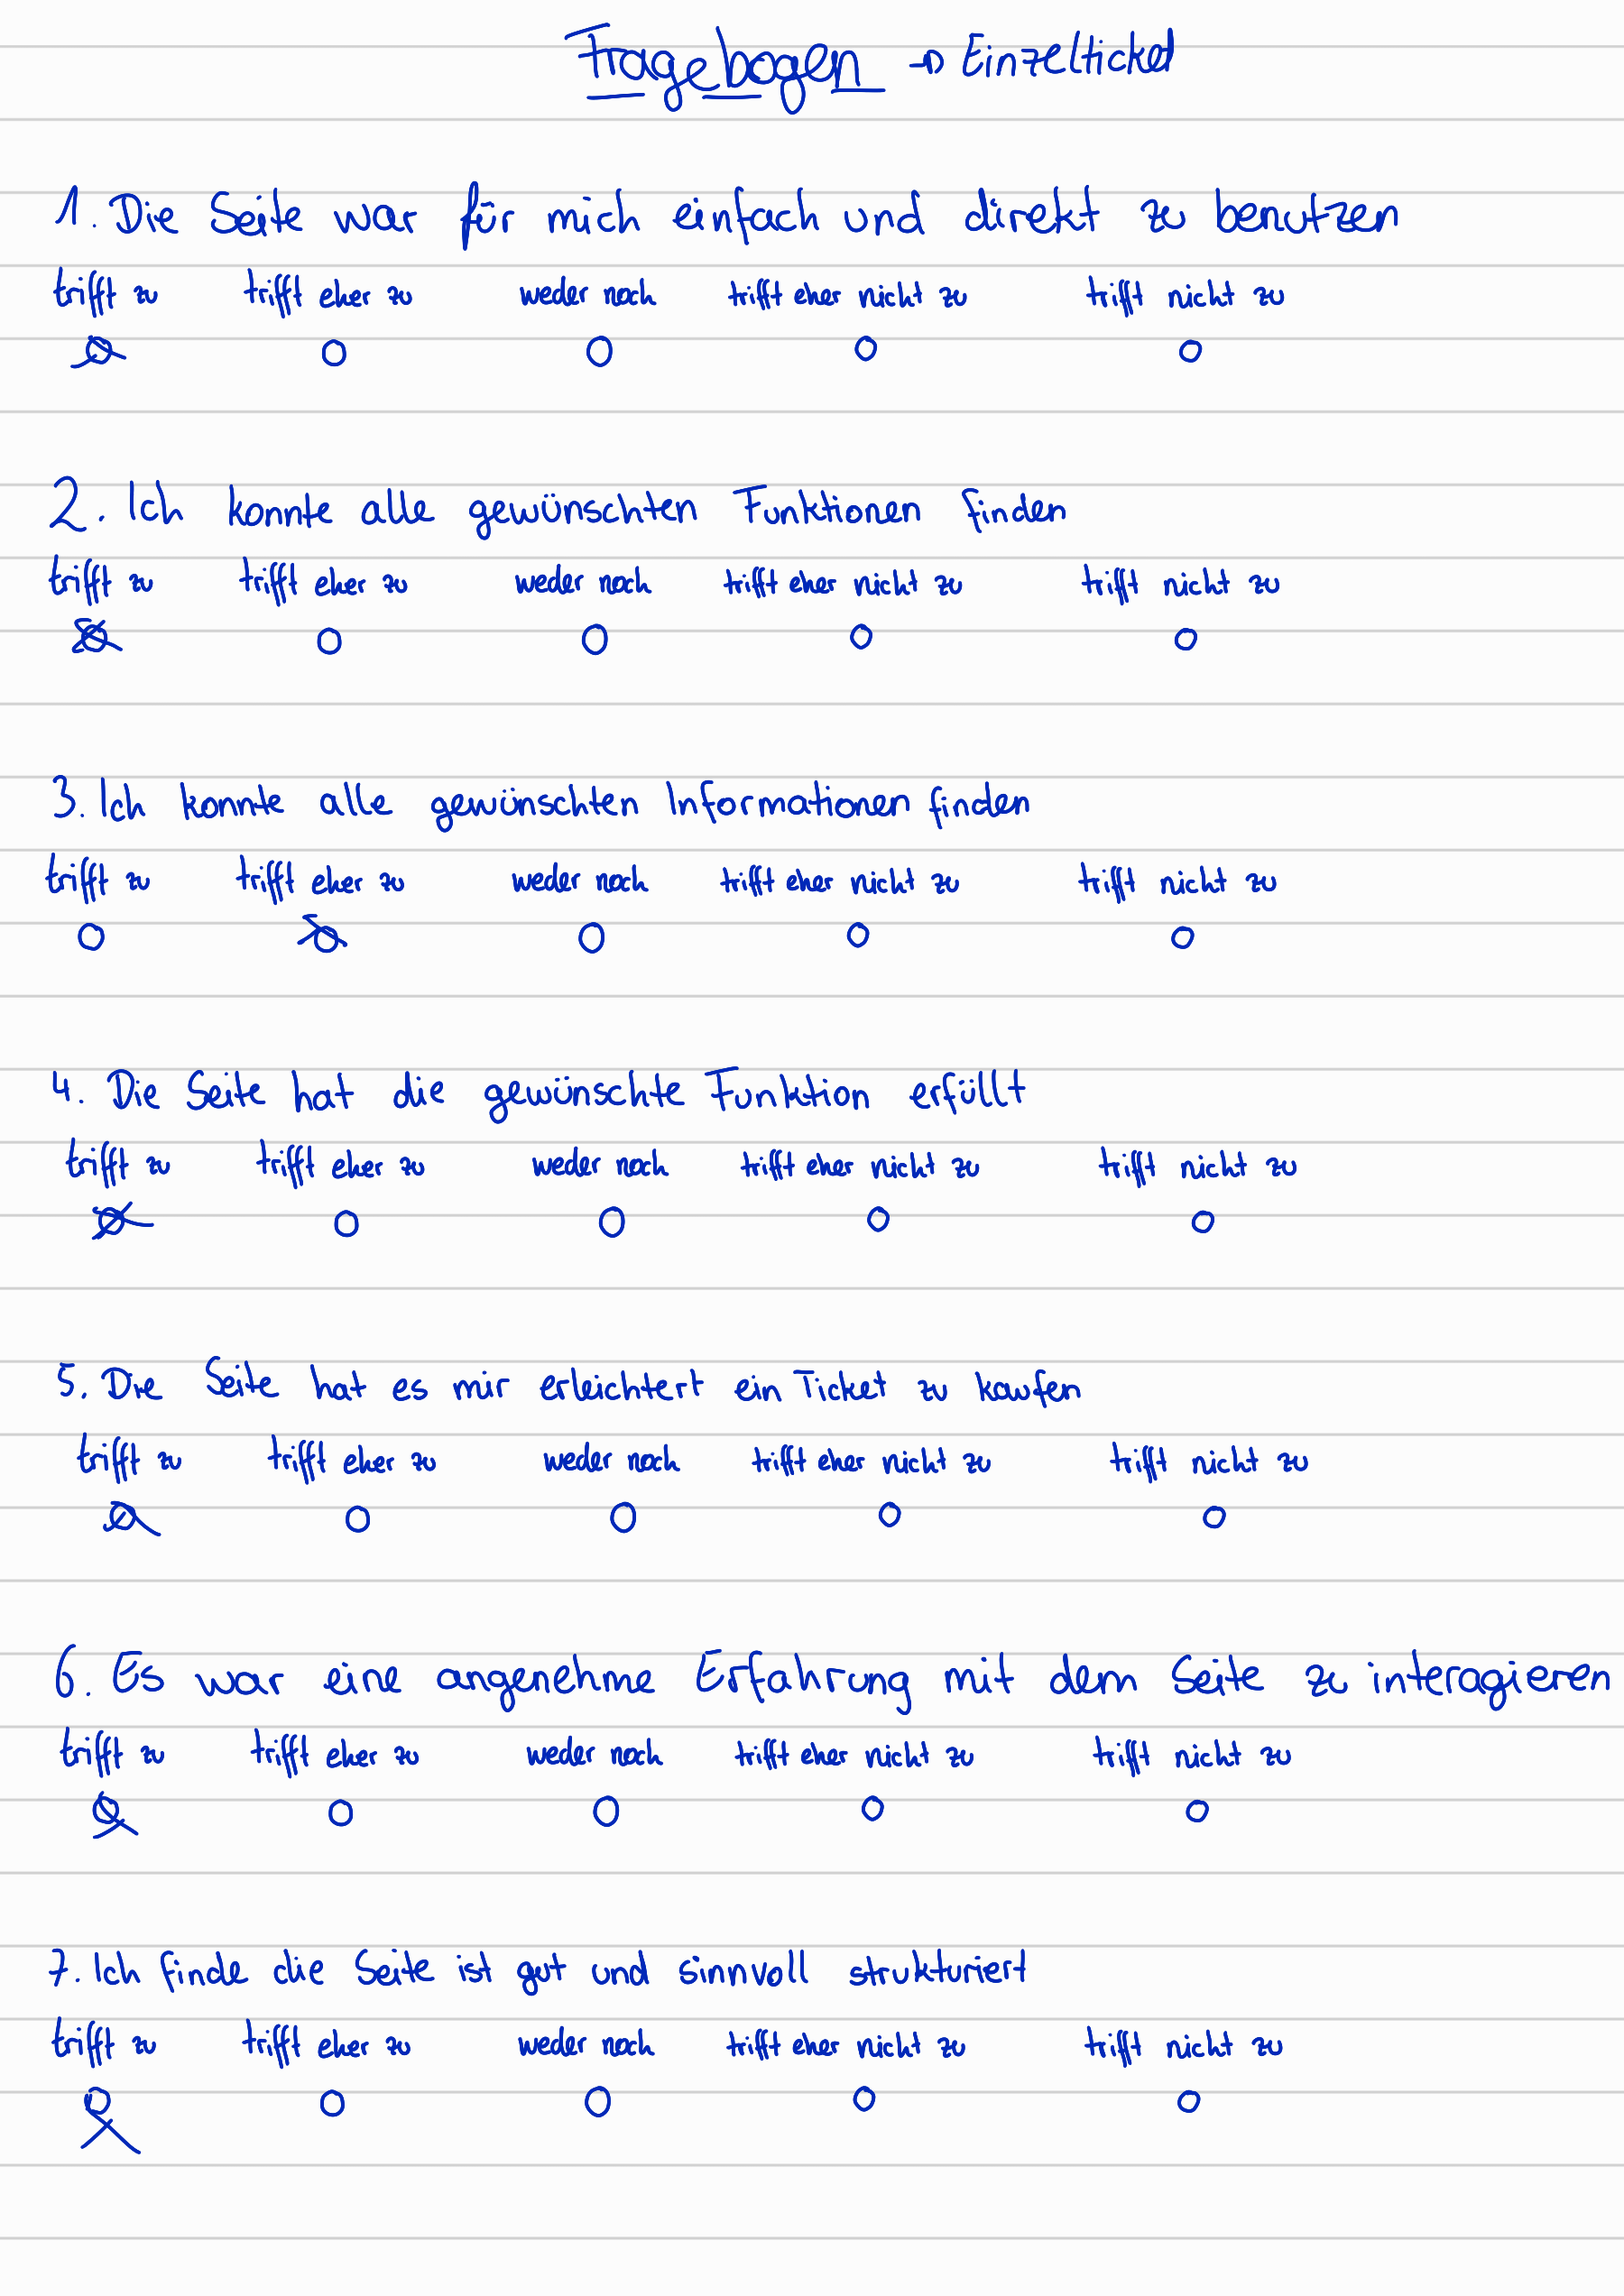 Fragebogen → Einzelticket
1. Die Seite war für mich einfach und direkt zu benutzen
trifft zu trifft eher zu weder noch trifft eher nicht zu trifft nicht zu
2. Ich konnte alle gewünschten Funktionen finden
trifft zu trifft eher zu weder noch trifft eher nicht zu trifft nicht zu
3. Ich konnte alle gewünschten Informationen finden
trifft zu trifft eher zu weder noch trifft eher nicht zu trifft nicht zu
4. Die Seite hat die gewünschte Funktion erfüllt
trifft zu trifft eher zu weder noch trifft eher nicht zu trifft nicht zu
5. Die Seite hat es mir erleichtert ein Ticket zu kaufen
trifft zu trifft eher zu weder noch trifft eher nicht zu trifft nicht zu
6. Es war eine angenehme Erfahrung mit dem Seite zu interagieren
trifft zu trifft eher zu weder noch trifft eher nicht zu trifft nicht zu
7. Ich finde die Seite ist gut und sinnvoll strukturiert
trifft zu trifft eher zu weder noch trifft eher nicht zu trifft nicht zu